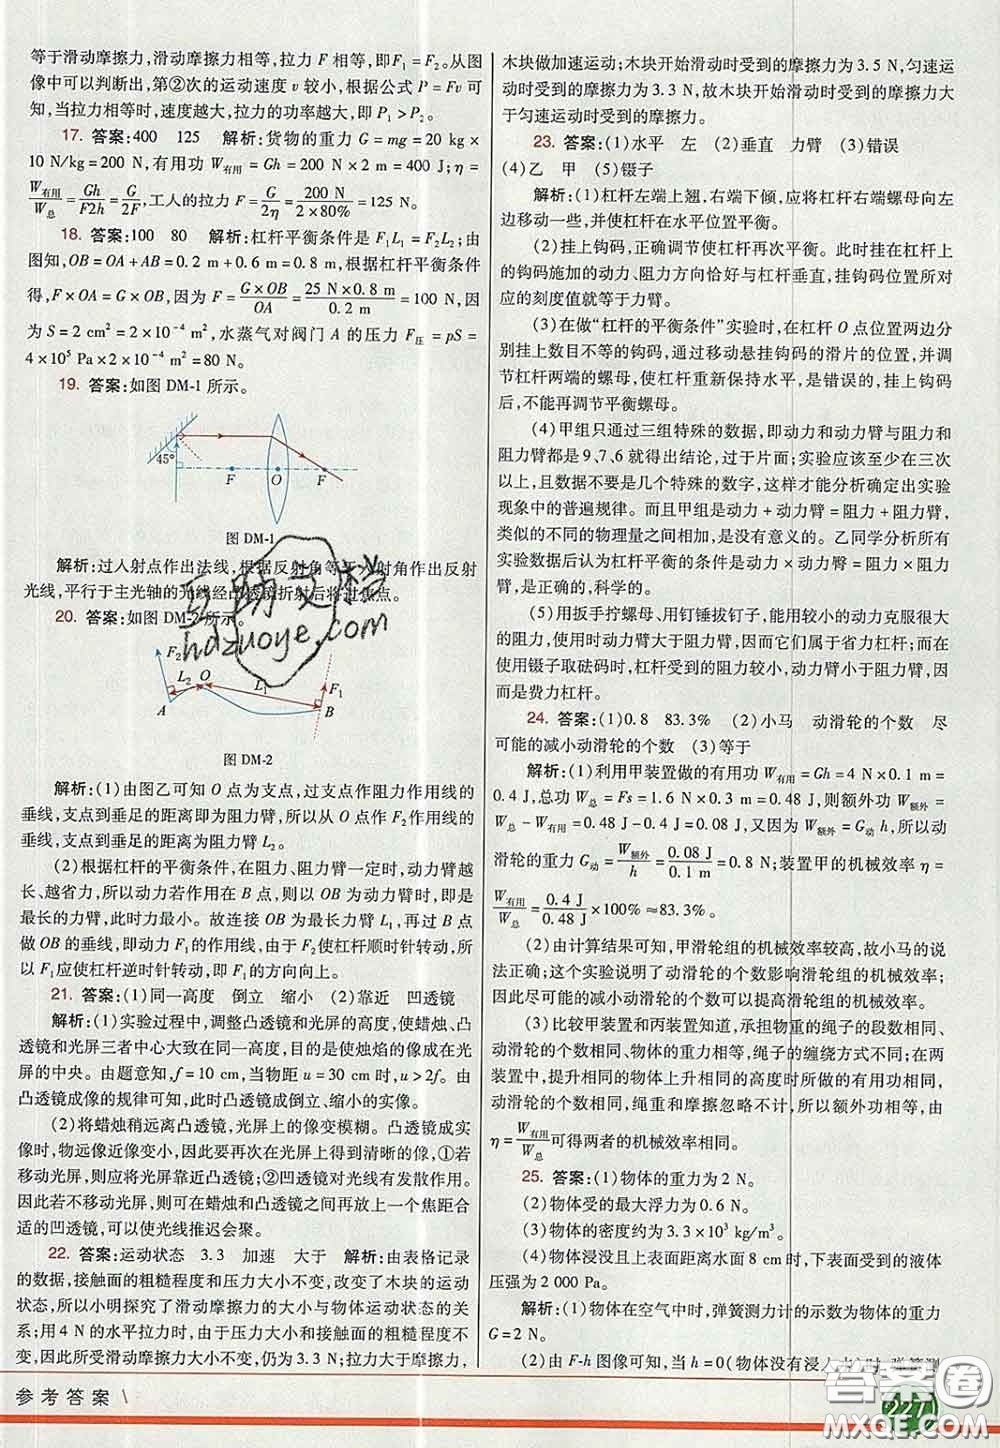 等于滑动摩擦力,滑动摩擦力相等,拉力 F 相等,即F₁=F₂。从图
像中可以判断出,第②次的运动速度 v 较小,根据公式 P=Fv 可
知,当拉力相等时,速度越大,拉力的功率越大,即 P₁>P₂。
17. 答案:400 125 解析:货物的重力 G=mg=20 kg×
10 N/kg=200 N,有用功 W有用=Gh=200 N×2 m=400 J;η=
W有用/W总=Gh/F2h=G/2F,工人的拉力 F=G/2η=200 N/2×80%=125 N。
18. 答案:100 80 解析:杠杆平衡条件是 F₁L₁=F₂L₂;由
图知,OB=OA+AB=0.2 m+0.6 m=0.8 m,根据杠杆平衡条件
得,F×OA=G×OB,因为 F=G×OB/OA=25 N×0.8 m/0.2 m=100 N,因
为 S=2 cm²=2×10⁻⁴ m²,水蒸气对阀门 A 的压力 F压=pS=
4×10⁵ Pa×2×10⁻⁴ m²=80 N。
19. 答案:如图 DM-1 所示。
45°
F O F
图 DM-1
解析:过入射点作出法线,根据反射角等于入射角作出反射
光线,平行于主光轴的光线经凸透镜折射后将过焦点。
20. 答案:如图 DM-2 所示。
F₂ L₂ O L₁ F₁
A B
图 DM-2
解析:(1)由图乙可知 O 点为支点,过支点作阻力作用线的
垂线,支点到垂足的距离即为阻力臂,所以从 O 点作 F₂作用线的
垂线,支点到垂足的距离为阻力臂 L₂。
(2)根据杠杆的平衡条件,在阻力、阻力臂一定时,动力臂越
长、越省力,所以动力若作用在 B 点,则以 OB 为动力臂时,即是
最长的力臂,此时力最小。故连接 OB 为最长力臂 L₁,再过 B 点
做 OB 的垂线,即动力 F₁的作用线,由于 F₂使杠杆顺时针转动,
所以 F₁应使杠杆逆时针转动,即 F₁的方向向上。
21. 答案:(1)同一高度 倒立 缩小 (2)靠近 凹透镜
解析:(1)实验过程中,调整凸透镜和光屏的高度,使蜡烛、凸
透镜和光屏三者中心大致在同一高度,目的是使烛焰的像成在光
屏的中央。由题意知,f=10 cm,当物距 u=30 cm 时,u>2f。由
凸透镜成像的规律可知,此时凸透镜成倒立、缩小的实像。
(2)将蜡烛稍远离凸透镜,光屏上的像变模糊。凸透镜成实
像时,物远像近像变小,因此要再次得到清晰的像,①若
移动光屏,应将光屏靠近凸透镜;②凹透镜对光线有发散作用。
若此时不移动光屏,可以在蜡烛和凸透镜之间放置一个焦距合
适的凹透镜,可以使光线推迟会聚。
22. 答案:运动状态 3.3 加速 大于 解析:由表格记录
的数据,接触面的粗糙程度和压力大小不变,改变了木块的运动
状态,所以小明探究了滑动摩擦力的大小与物体运动状态的关
系;用 4 N 的水平拉力时,由于压力大小和接触面的粗糙程度不
变,因此所受滑动摩擦力大小不变,仍为 3.3 N;拉力大于摩擦力,
木块做加速运动;木块开始滑动时受到的摩擦力为 3.5 N,匀速运
动时受到的摩擦力为 3.3 N,故木块开始滑动时受到的摩擦力大
于匀速运动时受到的摩擦力。
23. 答案:(1)水平 左 (2)垂直 力臂 (3)错误
(4)乙 甲 (5)镊子
解析:(1)杠杆左端上翘,右端下倾,应将杠杆右端螺母向左
边移动一些,并使杠杆在水平位置平衡。
(2)挂上钩码,正确调节使杠杆再次平衡。此时挂在杠杆上
的钩码施加的动力、阻力方向恰好与杠杆垂直,挂钩码位置所对
应的刻度值就等于力臂。
(3)在做“杠杆的平衡条件”实验时,在杠杆 O 点位置两边分
别挂上数目不等的钩码,通过移动悬挂钩码的滑片的位置,并调
节杠杆两端的螺母,使杠杆重新保持水平,是错误的,挂上钩码
后,不能再调节平衡螺母。
(4)甲组只通过三组特殊的数据,即动力和动力臂与阻力和
阻力臂都是 9、7、6 就得出结论,过于片面;实验应该至少在三次
以上,而且数据不要是几个特殊的数字,这样才能分析确定出实验
现象中的普遍规律。而且甲组是动力+动力臂=阻力+阻力臂,
类似的不同的物理量之间相加,是没有意义的。乙同学分析所有
实验数据后,发现杠杆平衡的条件是动力×动力臂=阻力×阻力
臂,是正确的,科学的。
(5)用扳手拧螺母、用钉锤拔钉子,能用较小的动力克服很大
的阻力,使用时动力臂大于阻力臂,因而它们属于省力杠杆;而在
使用镊子取砝码时,杠杆受到的阻力较小,动力臂小于阻力臂,因
而是费力杠杆。
24. 答案:(1)0.8 83.3% (2)小马 动滑轮的个数 尽
可能的减小动滑轮的个数 (3)等于
解析:(1)利用甲装置做的有用功 W有用=Gh=4 N×0.1 m=
0.4 J,总功 W总=Fs=1.6 N×0.3 m=0.48 J,则额外功 W额外=
W总-W有用=0.48 J-0.4 J=0.08 J,又因为 W额外=G动 h,所以动
滑轮的重力 G动=W额外/h=0.08 J/0.1 m=0.8 N;装置甲的机械效率 η=
W有用/W总=0.4 J/0.48 J×100%≈83.3%。
(2)由计算结果可知,甲滑轮组的机械效率较高,故小马的说
法正确;这个实验说明了动滑轮的个数影响滑轮组的机械效率;
因此尽可能的减小动滑轮的个数可以提高滑轮组的机械效率。
(3)比较甲装置和丙装置知道,承担物重的绳子的段数相同、
动滑轮的个数相同、物体的重力相等,绳子的缠绕方式不同;在两
装置中,提升相同的物体上升相同的高度时所做的有用功相同,
动滑轮相同,绳重和摩擦忽略不计,所以额外功相等,由
η=W有用/W总可得两者的机械效率相同。
25. 答案:(1)物体的重力为 2 N。
(2)物体受的最大浮力为 0.6 N。
(3)物体的密度约为 3.3×10³ kg/m³。
(4)物体浸没且上表面距离水面 8 cm 时,下表面受到的液体
压强为 2 000 Pa。
解析:(1)物体在空气中时,弹簧测力计的示数为物体的重力
G=2 N。
(2)由 F-h 图像可知,当 h=0(物体没有浸入水中)时,弹簧测
参考答案
227
互助文档
hdzuoye.com
答案圈
MXQE.COM